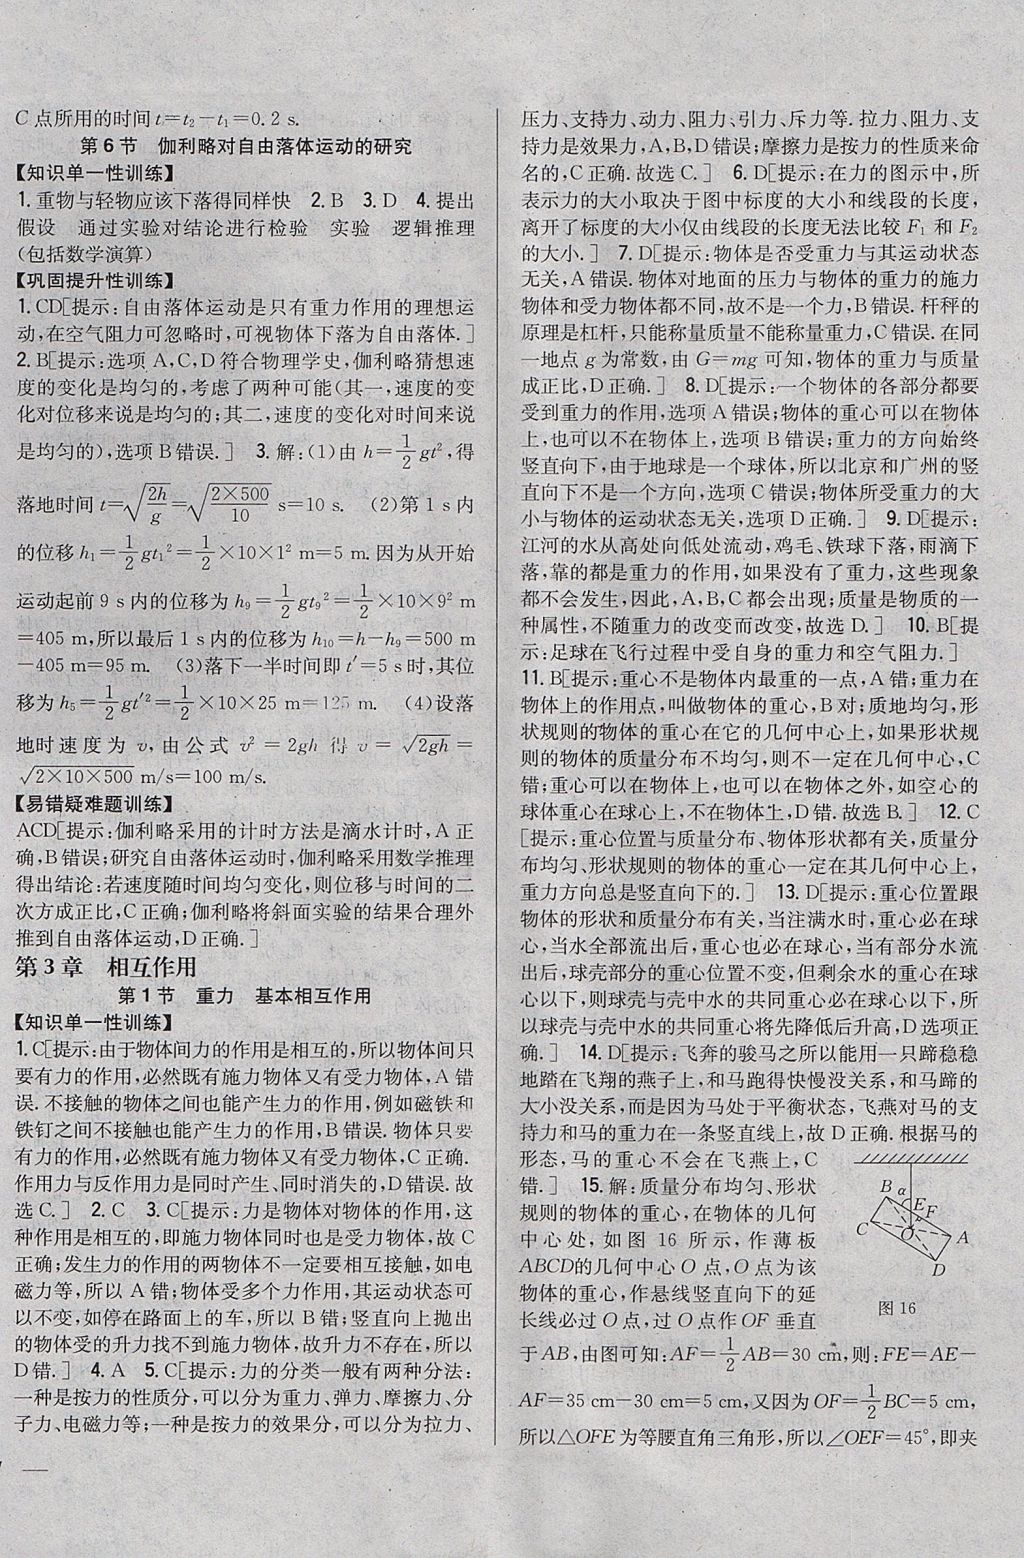 C点所用的时间 t=t₂-t₁=0.2 s.
第6节 伽利略对自由落体运动的研究
【知识单一性训练】
1.重物与轻物应该下落得同样快 2.B 3.D 4.提出
假设 通过实验对结论进行检验 实验 逻辑推理
(包括数学演算)
【巩固提升性训练】
1.CD[提示:自由落体运动是只有重力作用的理想运
动,在空气阻力可忽略时,可视物体下落为自由落体.]
2.B[提示:选项A,C,D符合物理学史,伽利略猜想速
度的变化是均匀的,考虑了两种可能(其一,速度的变
化对位移来说是均匀的;其二,速度的变化对时间来说
是均匀的),选项B错误.] 3.解:(1)由 h=1/2 gt²,得
落地时间 t=√(2h/g)=√(2×500/10) s=10 s. (2)第1 s内
的位移 h₁=1/2 gt₁²=1/2×10×1² m=5 m.因为从开始
运动起前9 s内的位移为 h₉=1/2 gt₉²=1/2×10×9² m
=405 m,所以最后1 s内的位移为 h₁₀=h-h₉=500 m
-405 m=95 m. (3)落下一半时间即 t′=5 s时,其位
移为 h₅=1/2 gt′²=1/2×10×25 m=125 m. (4)设落
地时速度为 v,由公式 v²=2gh 得 v=√(2gh)=
√(2×10×500) m/s=100 m/s.
【易错疑难题训练】
ACD[提示:伽利略采用的计时方法是滴水计时,A正
确,B错误;研究自由落体运动时,伽利略采用数学推理
得出结论:若速度随时间均匀变化,则位移与时间的二
次方成正比,C正确;伽利略将斜面实验的结果合理外
推到自由落体运动,D正确.]
第3章 相互作用
第1节 重力 基本相互作用
【知识单一性训练】
1.C[提示:由于物体间力的作用是相互的,所以物体间只
要有力的作用,必然既有施力物体又有受力物体,A错
误.不接触的物体之间也能产生力的作用,例如磁铁和
铁钉之间不接触也能产生力的作用,B错误.物体只要
有力的作用,必然既有施力物体又有受力物体,C正确.
作用力与反作用力是同时产生、同时消失的,D错误.故
选C.] 2.C 3.C[提示:力是物体对物体的作用,这
种作用是相互的,即施力物体同时也是受力物体,故C
正确;发生力的作用的两物体不一定要相互接触,如电
磁力等,所以A错;物体受多个力作用,其运动状态可
以不变,如停在路面上的车,所以B错;竖直向上抛出
的物体受的升力找不到施力物体,故升力不存在,所以
D错.] 4.A 5.C[提示:力的分类一般有两种分法:
一种是按力的性质分,可以分为重力、弹力、摩擦力、分
子力、电磁力等;一种是按力的效果分,可以分为拉力、
压力、支持力、动力、阻力、引力、斥力等.拉力、阻力、支
持力是效果力,A,B,D错误;摩擦力是按力的性质来命
名的,C正确.故选C.] 6.D[提示:在力的图示中,所
表示力的大小取决于图中标度的大小和线段的长度,
离开了标度的大小仅由线段的长度无法比较 F₁ 和 F₂
的大小.] 7.D[提示:物体是否受重力与其运动状态
无关,A错误.物体对地面的压力与物体的重力的施力
物体和受力物体都不同,故不是一个力,B错误.杆秤的
原理是杠杆,只能称量质量不能称量重力,C错误.在同
一地点 g 为常数,由 G=mg 可知,物体的重力与质量
成正比,D正确.] 8.D[提示:一个物体的各部分都要
受到重力的作用,选项A错误;物体的重心可以在物体
上,也可以不在物体上,选项B错误;重力的方向始终
竖直向下,由于地球是一个球体,所以北京和广州的竖
直向下不是一个方向,选项C错误;物体所受重力的大
小与物体的运动状态无关,选项D正确.] 9.D[提示:
江河的水从高处向低处流动,鸡毛、铁球下落,雨滴下
落,靠的都是重力的作用,如果没有了重力,这些现象
都不会发生,因此,A、B、C都会出现;质量是物质的一
种属性,不随重力的改变而改变,故选D.] 10.B[提
示:足球在飞行过程中受自身的重力和空气阻力.]
11.B[提示:重心不是物体内最重的一点,A错;重力在
物体上的作用点,叫做物体的重心,B对;质地均匀,形
状规则的物体的重心在它的几何中心上,如果形状规
则的物体的质量分布不均匀,则不一定在几何中心,C
错;重心可以在物体上,也可以在物体之外,如空心的
球体重心在球心上,不在物体上,D错.故选B.] 12.C
[提示:重心位置与质量分布、物体形状都有关,质量分
布均匀、形状规则的物体的重心一定在其几何中心上,
重力方向总是竖直向下的.] 13.D[提示:重心位置跟
物体的形状和质量分布有关,当注满水时,重心必在球
心,当水全部流出后,重心也必在球心,当有部分水流
出后,球壳部分的重心位置不变,但剩余水的重心在球
心以下,则球壳与壳中水的共同重心必在球心以下,所
以球壳与壳中水的共同重心将先降低后升高,D选项正
确.] 14.D[提示:飞奔的骏马之所以能用一只蹄稳稳
地踏在飞翔的燕子上,和马跑得快慢没关系,和马蹄的
大小没关系,而是因为马处于平衡状态,飞燕对马的支
持力和马的重力在一条竖直线上,故D正确.根据马的
形态,马的重心不会在飞燕上,C
错.] 15.解:质量分布均匀、形状
规则的物体的重心,在物体的几何
中心处,如图16所示,作薄板
ABCD的几何中心O点,O点为该
物体的重心,作悬线竖直向下的延
长线必过O点,过O点作OF垂直
B α E F C O A D
图16
于AB,由图可知:AF=1/2 AB=30 cm,则:FE=AE-
AF=35 cm-30 cm=5 cm,又因为OF=1/2 BC=5 cm,
所以△OFE为等腰直角三角形,所以∠OEF=45°,即夹